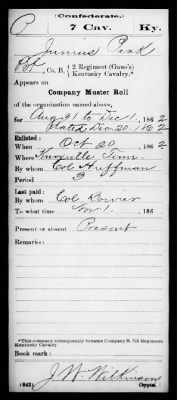 (Confederate.)
P 7 Cav. Ky.
Junius Peak
Pvt, Co. B, 2 Regiment (Gano's) Kentucky Cavalry.*
Appears on
Company Muster Roll
of the organization named above,
for Aug 31 to Dec 1, 1862
dated Dec 20, 1862
Enlisted:
When Oct 20, 1862
Where Knoxville Tenn.
By whom Col Huffman
Period 3
Last paid:
By whom Col Bower
To what time 1, 186
Present or absent Present
Remarks:
*This company subsequently became Company B, 7th Regiment Kentucky Cavalry.
Book mark:
J W Wilkinson
(642) Copyist.